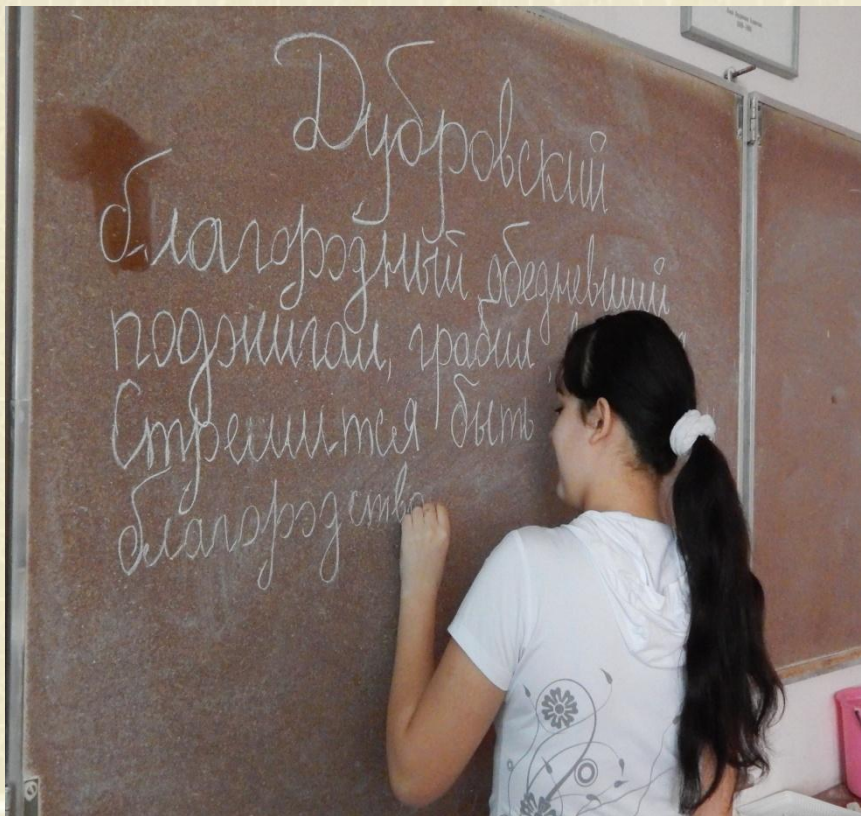 Дубровский
благородный обедневший
поджигал, грабил,
Стремится быть
благородство